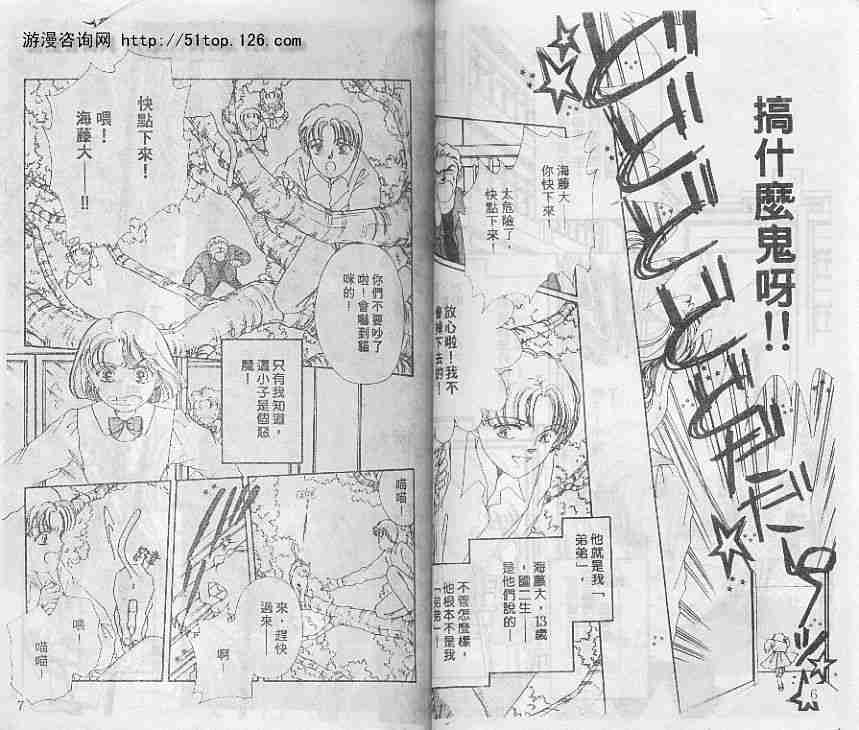 游漫咨询网 http://51top.126.com
搞什麼鬼呀!!
海藤大——
你快下來!
太危險了,
快點下來!
放心啦!我不
會掉下去的!
他就是我「
弟弟」,
海藤大,13歲
,國二生——
是他們說的—
不管怎麼樣,
他根本不是我
「弟弟」
6
快點下來!
喂!
海藤大——!!
你們不要吵了
啦!會嚇到貓
咪的!
只有我知道,
這小子是個惡
魔!
喵喵—
來,趕快
過來—
啊
喂—
喵喵—
7